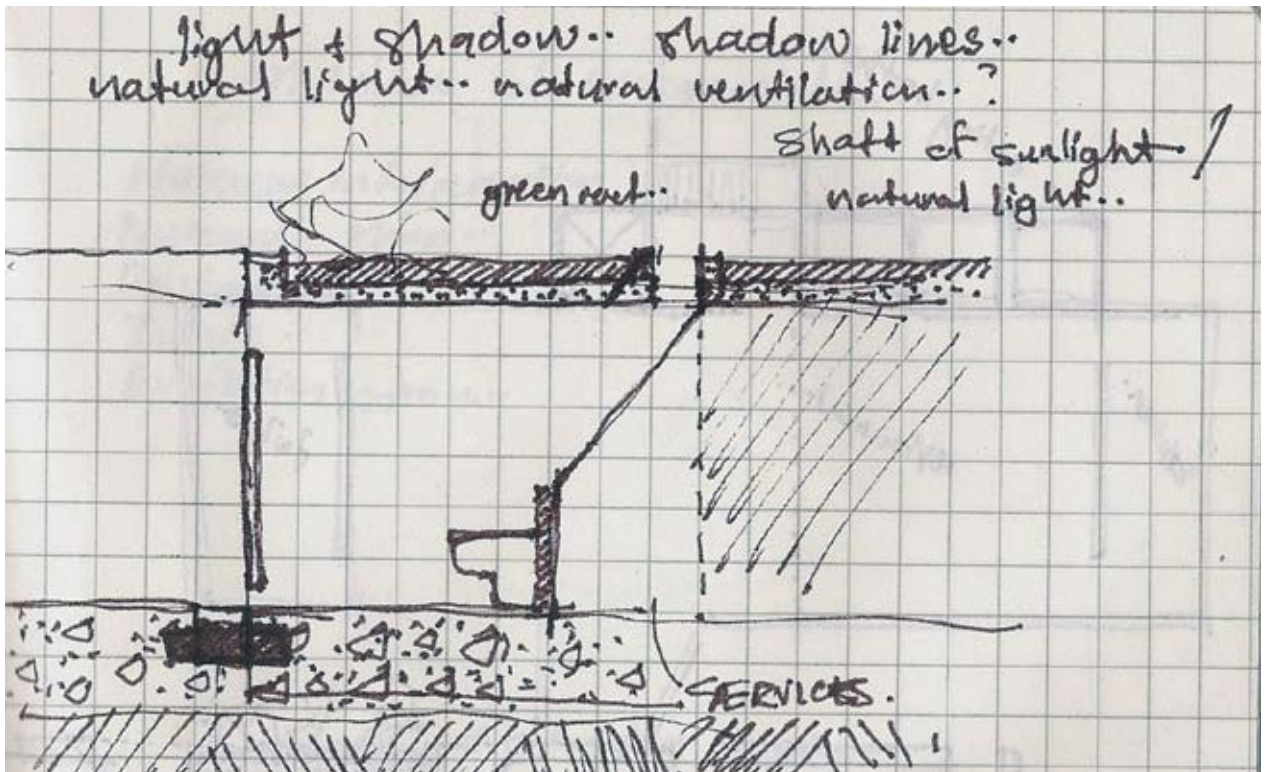 light & shadow.. shadow lines..
natural light.. natural ventilation..?
shaft of sunlight
green roof..
natural light..
SERVICES.